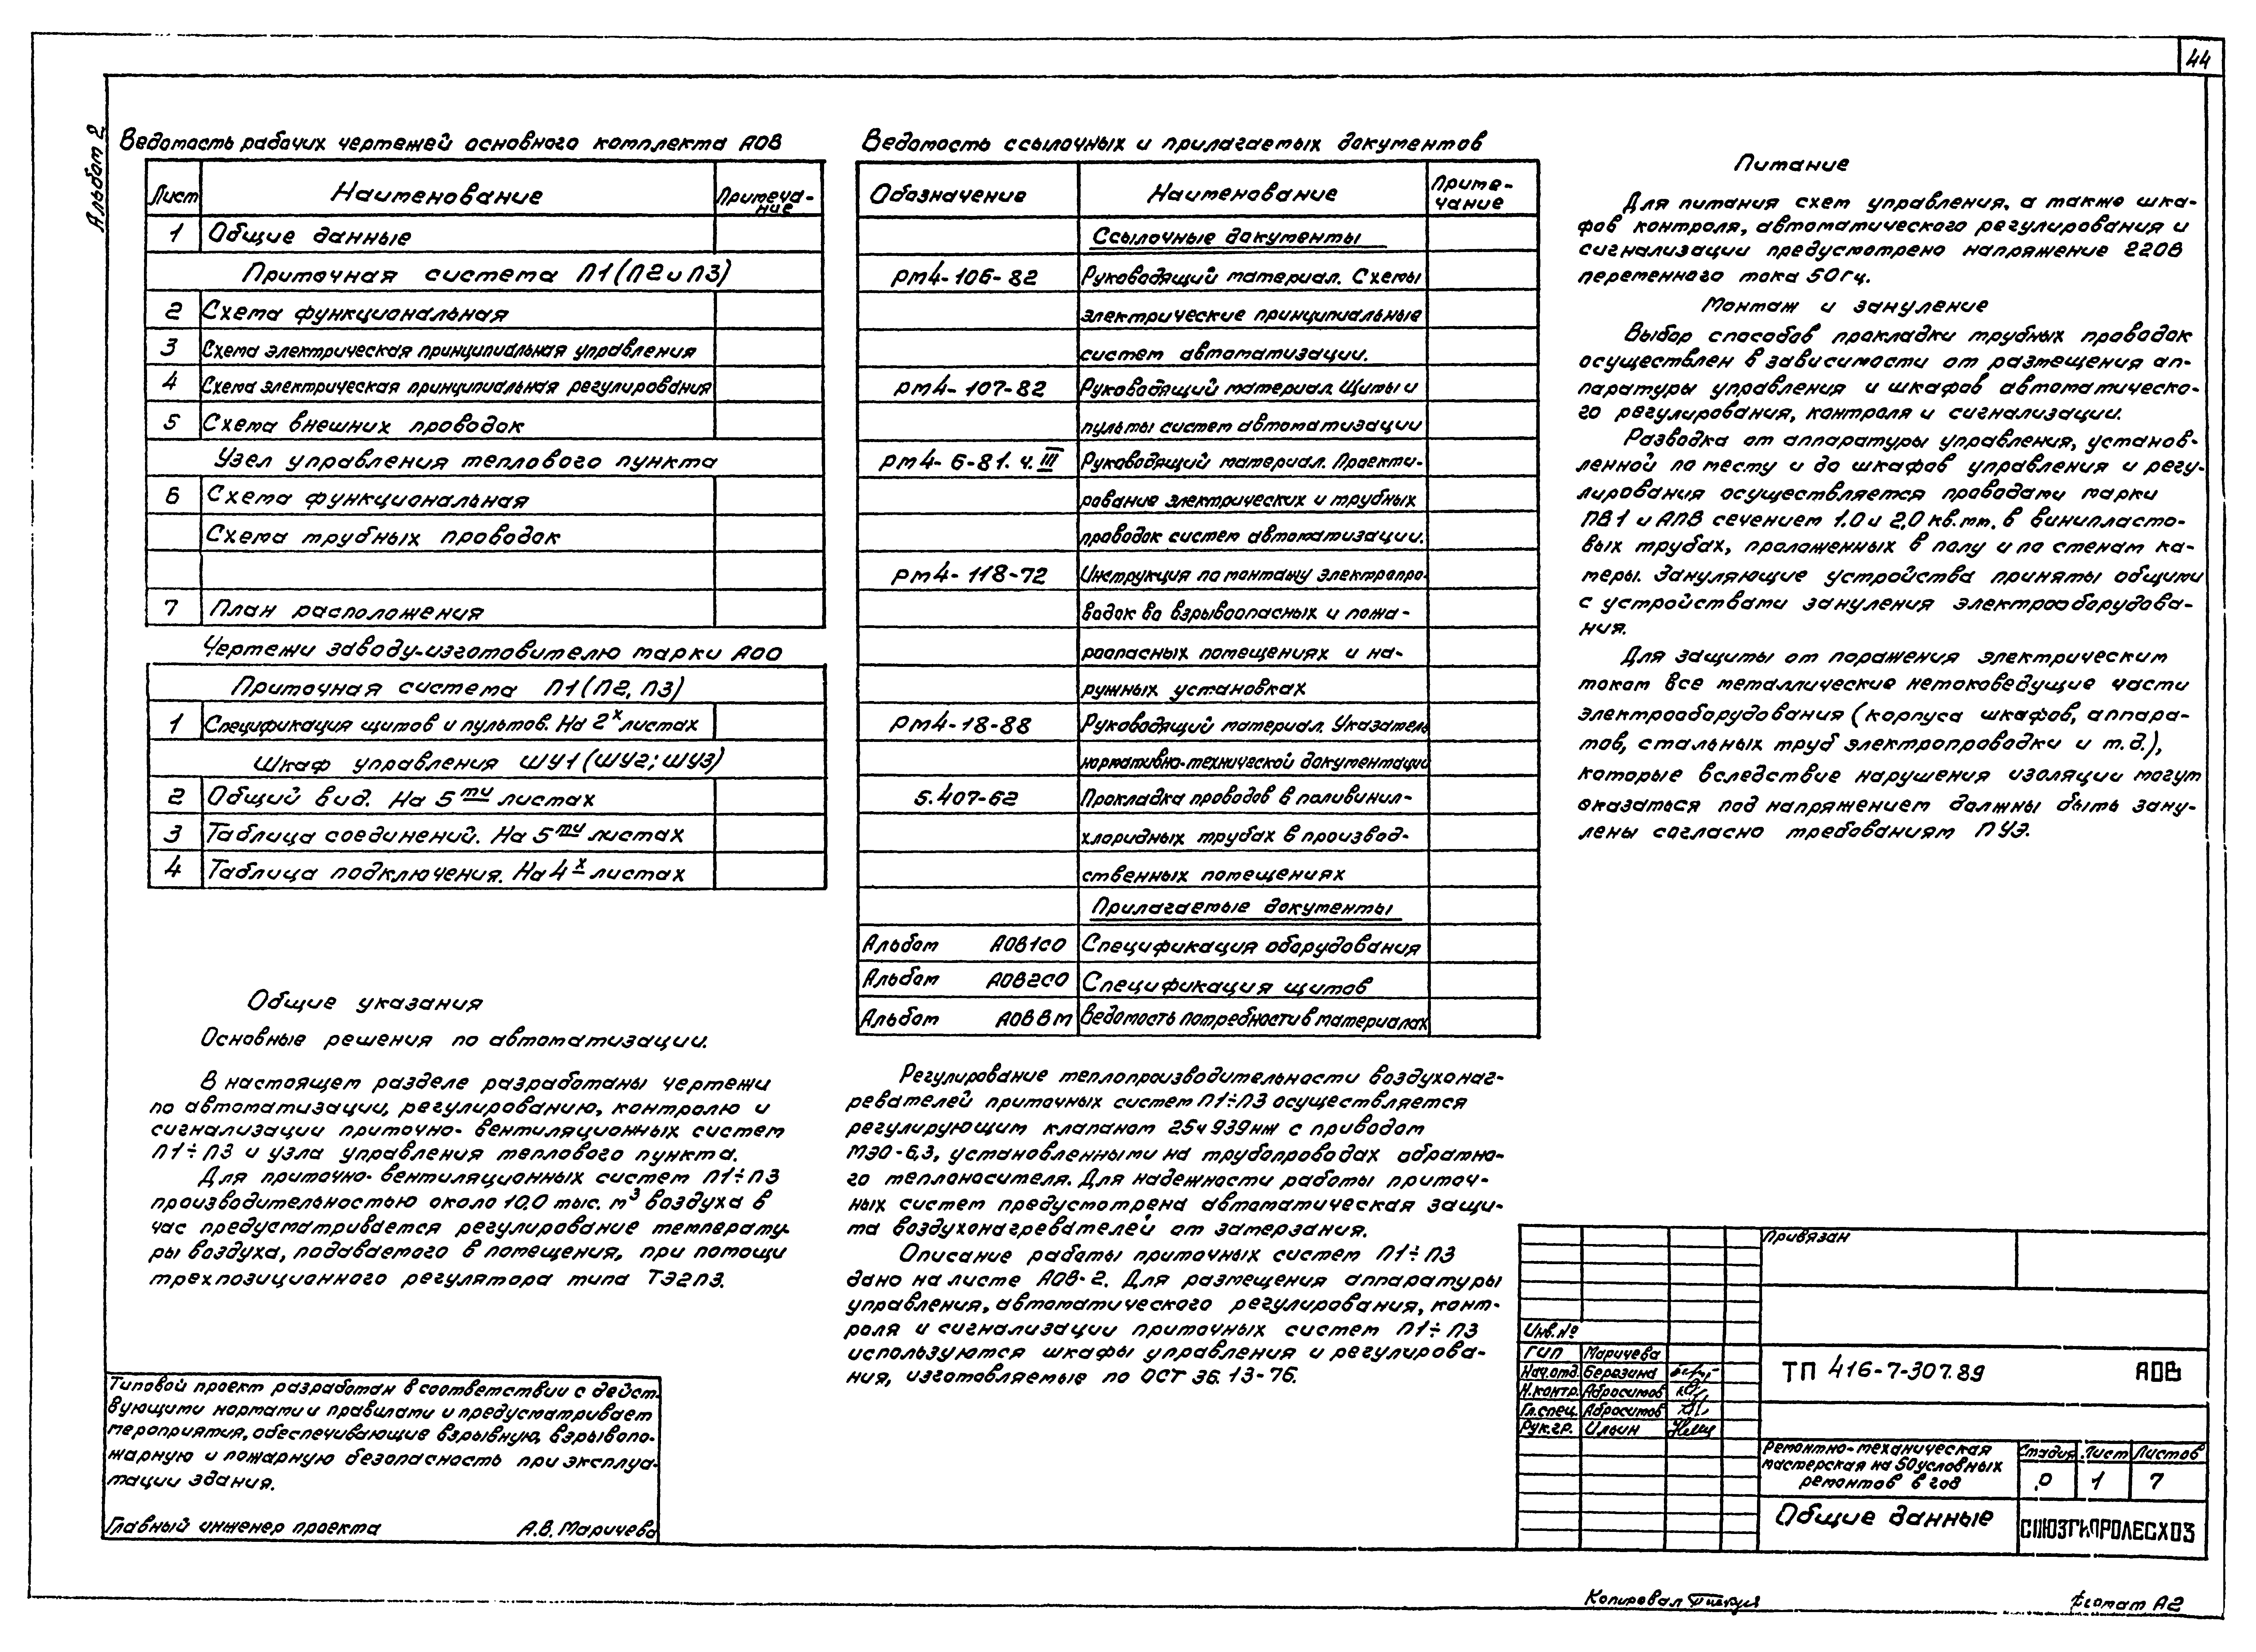 44
Альбом 2
Ведомость рабочих чертежей основного комплекта АОВ
Лист Наименование Примеча-
ние
1 Общие данные
Приточная система П1 (П2 и П3)
2 Схема функциональная
3 Схема электрическая принципиальная управления
4 Схема электрическая принципиальная регулирования
5 Схема внешних проводок
Узел управления теплового пункта
6 Схема функциональная
Схема трубных проводок
7 План расположения
Чертежи заводу-изготовителю марки АОО
Приточная система П1 (П2, П3)
1 Спецификация щитов и пультов. На 2х листах
Шкаф управления ШУ1 (ШУ2; ШУ3)
2 Общий вид. На 5ти листах
3 Таблица соединений. На 5ти листах
4 Таблица подключения. На 4х листах
Общие указания
Основные решения по автоматизации.
В настоящем разделе разработаны чертежи
по автоматизации, регулированию, контролю и
сигнализации приточно-вентиляционных систем
П1÷П3 и узла управления теплового пункта.
Для приточно-вентиляционных систем П1÷П3
производительностью около 10,0 тыс. м³ воздуха в
час предусматривается регулирование температу-
ры воздуха, подаваемого в помещения, при помощи
трехпозиционного регулятора типа ТЭ2П3.
Типовой проект разработан в соответствии с дейст-
вующими нормами и правилами и предусматривает
мероприятия, обеспечивающие взрывную, взрывопо-
жарную и пожарную безопасность при эксплуа-
тации здания.
Главный инженер проекта А.В. Маричева
Ведомость ссылочных и прилагаемых документов
Обозначение Наименование Приме-
чание
Ссылочные документы
РМ4-106-82 Руководящий материал. Схемы
электрические принципиальные
систем автоматизации.
РМ4-107-82 Руководящий материал. Щиты и
пульты систем автоматизации
РМ4-6-81. ч. III Руководящий материал. Проекти-
рование электрических и трубных
проводок систем автоматизации.
РМ4-118-72 Инструкция по монтажу электропро-
водок во взрывоопасных и пожа-
роопасных помещениях и на-
ружных установках
РМ4-18-88 Руководящий материал. Указатель
нормативно-технической документации
5.407-62 Прокладка проводов в поливинил-
хлоридных трубах в производ-
ственных помещениях
Прилагаемые документы
Альбом АОВ1СО Спецификация оборудования
Альбом АОВ2СО Спецификация щитов
Альбом АОВВМ Ведомость потребности в материалах
Регулирование теплопроизводительности воздухонаг-
ревателей приточных систем П1÷П3 осуществляется
регулирующим клапаном 25ч939нж с приводом
МЭО-6,3, установленными на трубопроводах обратно-
го теплоносителя. Для надежности работы приточ-
ных систем предусмотрена автоматическая защи-
та воздухонагревателей от замерзания.
Описание работы приточных систем П1÷П3
дано на листе АОВ-2. Для размещения аппаратуры
управления, автоматического регулирования, конт-
роля и сигнализации приточных систем П1÷П3
используются шкафы управления и регулирова-
ния, изготовляемые по ОСТ 36.13-76.
Питание
Для питания схем управления, а также шка-
фов контроля, автоматического регулирования и
сигнализации предусмотрено напряжение 220В
переменного тока 50гц.
Монтаж и зануление
Выбор способов прокладки трубных проводок
осуществлен в зависимости от размещения ап-
паратуры управления и шкафов автоматическо-
го регулирования, контроля и сигнализации.
Разводка от аппаратуры управления, установ-
ленной по месту и до шкафов управления и регу-
лирования осуществляется проводами марки
ПВ1 и АПВ сечением 1.0 и 2,0 кв.мм. в винипласто-
вых трубах, проложенных в полу и по стенам ка-
меры. Зануляющие устройства приняты общими
с устройствами зануления электрооборудова-
ния.
Для защиты от поражения электрическим
током все металлические нетоковедущие части
электрооборудования (корпуса шкафов, аппара-
тов, стальных труб электропроводки и т.д.),
которые вследствие нарушения изоляции могут
оказаться под напряжением должны быть зану-
лены согласно требованиям ПУЭ.
Привязан
Инв. №
ГИП Маричева
Нач.отд. Березина
Н.контр. Абросимов
Гл.спец. Абросимов
Рук.гр. Ильин
ТП 416-7-307.89 АОВ
Ремонтно-механическая
мастерская на 50 условных
ремонтов в год
Стадия Лист Листов
Р 1 7
Общие данные
СОЮЗГИПРОЛЕСХОЗ
Копировал
Формат А2